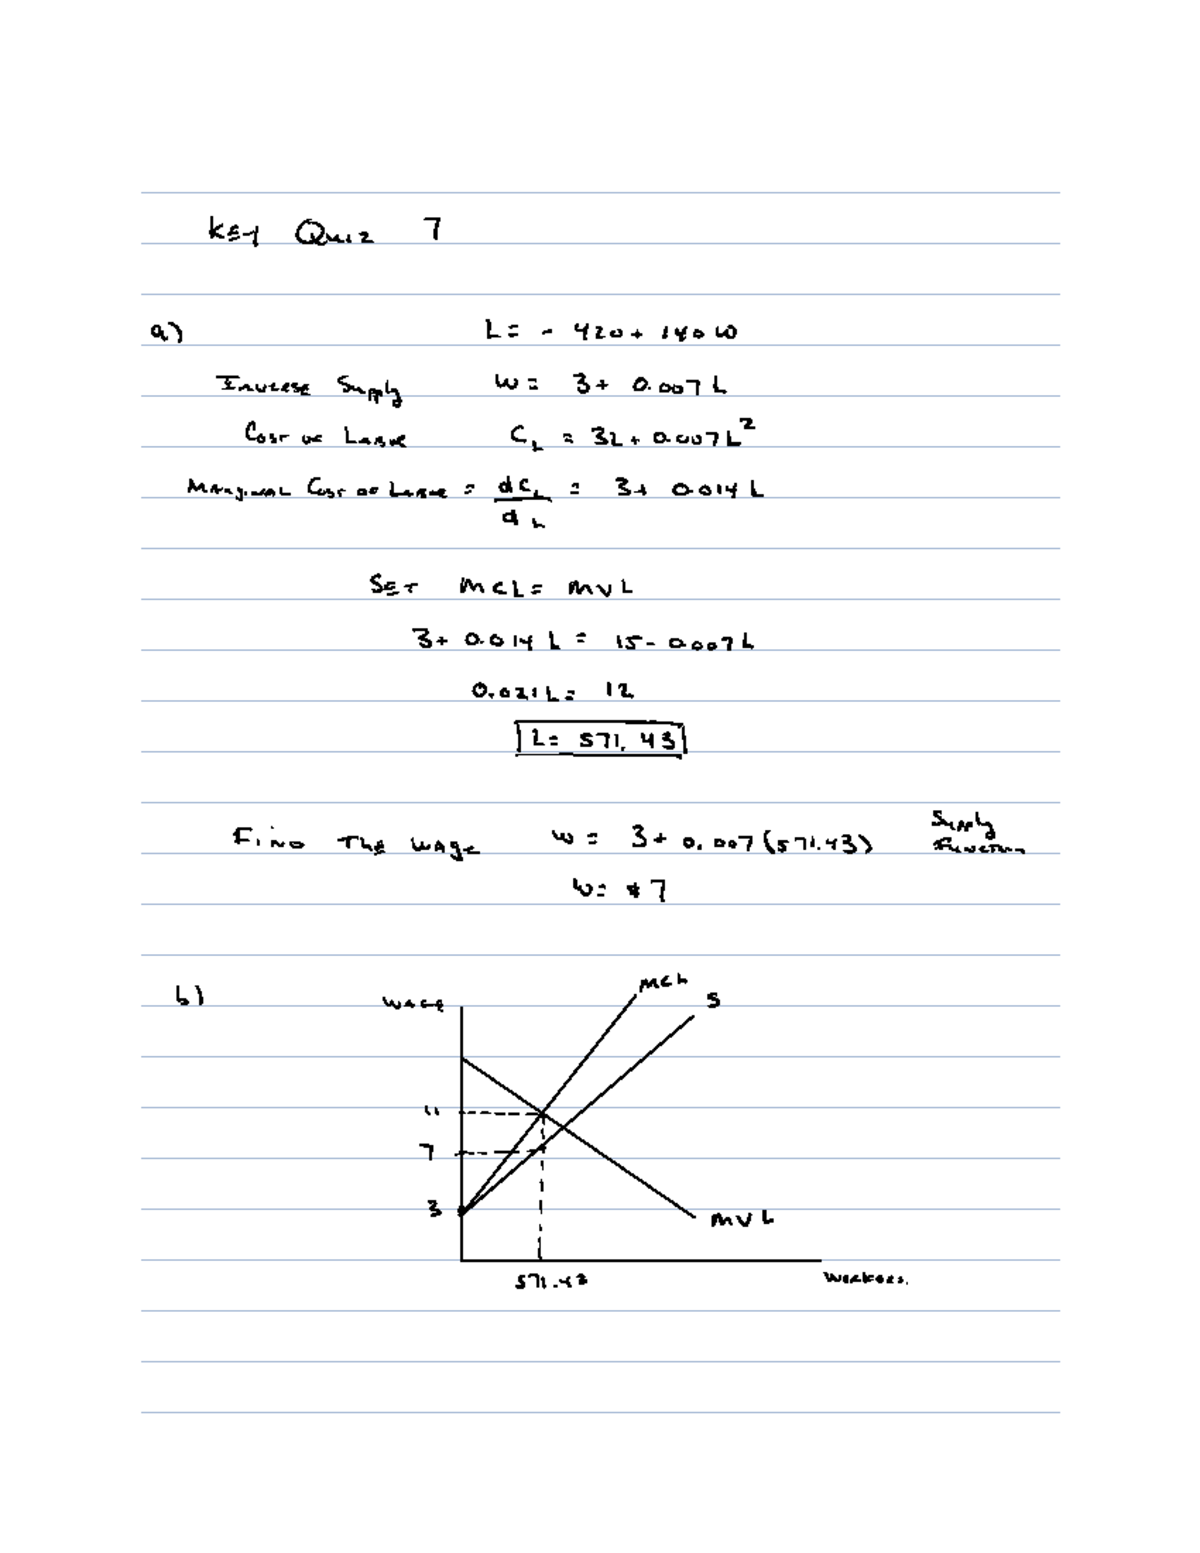 Key Quiz 7
a) L = - 420 + 140 W
Inverse Supply W = 3 + 0.007 L
Cost of Labor C_L = 3L + 0.007 L²
Marginal Cost of Labor = dC_L / dL = 3 + 0.014 L
Set MCL = MVL
3 + 0.014 L = 15 - 0.007 L
0.021 L = 12
L = 571.43
Find The Wage W = 3 + 0.007 (571.43) Supply Function
W = $7
b) Wage
MCL
S
11
7
3
MVL
571.43 Workers.